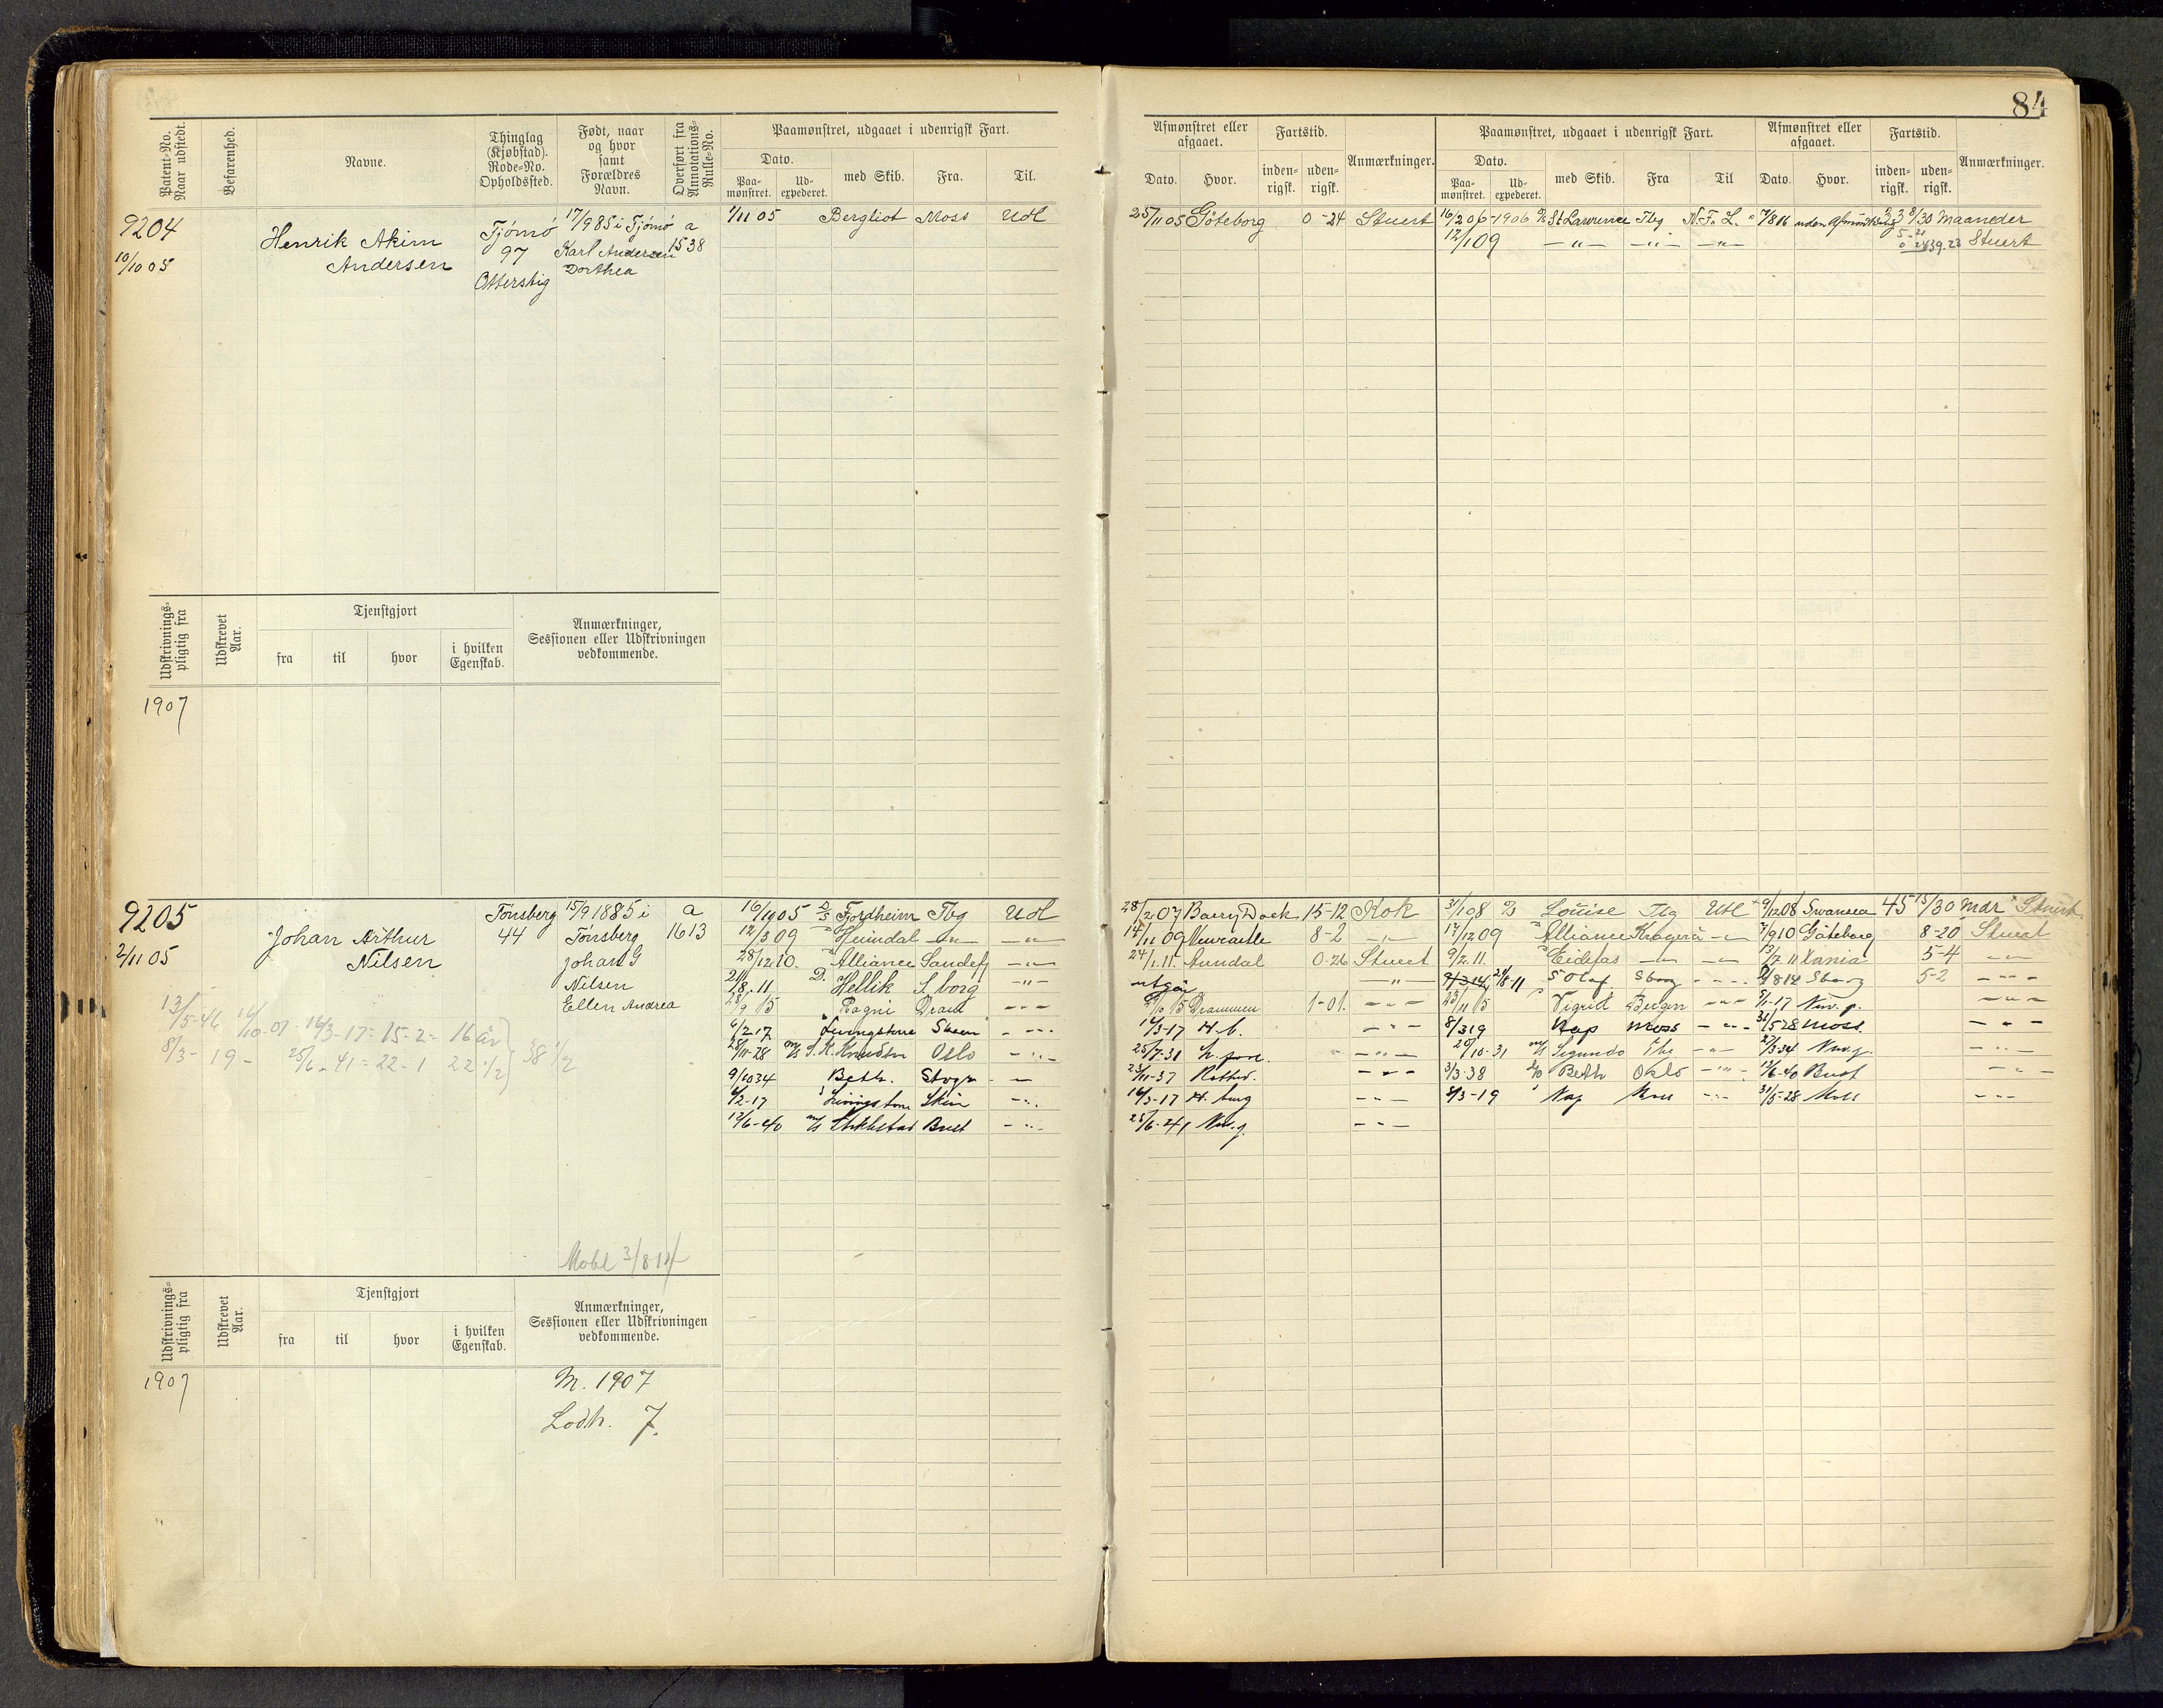 84
Patent-No. Naar udstedt.
Befarenhed.
Navne.
Thinglag (Kjøbstad). Rode-No. Opholdssted.
Født, naar og hvor samt Forældres Navn.
Overført fra Annotations-Rulle-No.
Paamønstret, udgaaet i udenrigsk Fart.
Dato.
Paa-mønstret.
Ud-expederet.
med Skib.
Fra.
Til.
Afmønstret eller afgaaet.
Dato.
Hvor.
Fartstid.
inden-rigsk.
uden-rigsk.
Anmærkninger.
Paamønstret, udgaaet i udenrigsk Fart.
Dato.
Paa-mønstret.
Ud-expederet.
med Skib.
Fra
Til
Afmønstret eller afgaaet.
Dato.
Hvor.
Fartstid.
inden-rigsk.
uden-rigsk.
Anmærkninger.
9204
10/10 05
Henrik Akim
Andersen
Tjømö
97
17/9 85 i Tjømö
Karl Andersen
Dorthea
a
1538
1/11 05 Bergliot Moss Udl
25/11 05 Göteborg 0-24 Stuert
16/2 06-1906 St Lawrence Tbg N. Fr. L. 7/8 06 uden 3 3 8/30 Maaneder
12/1 09 —„— —„— —„— 39.23 Stuert
Udskrivnings-pligtig fra
Udskrevet Aar.
Tjenstgjort
fra
til
hvor
i hvilken Egenskab.
Anmærkninger, Sessionen eller Udskrivningen vedkommende.
1907
9205
2/11 05
Johan Arthur
Nilsen
Tönsberg
44
15/9 1885 i
Tönsberg
Johan G
Nilsen
Ellen Andrea
a
1613
13/5-46 16/10-01 - 16/3-17 = 15-2 = 16 år
8/3-19 - 25/6-41 = 22-1 22 1/2
38 1/2
Mobl 3/8 14
16/11 05 Fjordheim Tbg Udl
12/3 09 Heimdal —„— —„—
28/12 10. Alliance Sandefj —„—
21/8. 11 D. Hellik S.borg —„—
28/9 15 Ragni Dram —„—
6/2-17 Livingstone Skien —„—
28/11-28 m/s K. Knudsen Oslo —„—
9/10 34 Beth. —
6/2-17 Livingstone Skien —„—
12/6-40 m/s Stiklestad Brest —„—
28/2 07 Barry Dock 15-12 Kok
14/11 09 Newcastle 8-2 —„—
24/1. 11. Arendal 0-26 Stuert
utgår —„—
15 Drammen 1-01. —„—
16/3-17 H.b. —„—
25/7-31 —„—
23/11-37 Rotterd. —„—
16/3-17 H. burg —„—
25/6-41 N.v.g. —„—
31/1 08 Louise Tbg Udl 9/12 08 Swansea 45 15/30 Mdr Stuert
17/12 09 Alliance Kragerö —„— 7/9 10 Göteborg 8-20 Stuert
9/2. 11. Eidefos —„— —„— 13/7. 11 Xania 5-4 —„—
21/8 11 S Olaf Sborg —„— 8 14 Sborg 5-2 —„—
23/11 15 Sigrid Bergen —„— 1-17 N.v.g. —„—
8/3 19 Kap Moss —„— 31/5 28 Moss. —„—
20/10-31 m/s Segundo Tbg —„— 27/3-34 N.v.g. —„—
3/3-38 Beth Oslo —„— 12/6-40 Brest —„—
8/3-19 Kap Moss —„— 31/5-28 Moss —„—
Udskrivnings-pligtig fra
Udskrevet Aar.
Tjenstgjort
fra
til
hvor
i hvilken Egenskab.
Anmærkninger, Sessionen eller Udskrivningen vedkommende.
1907
M. 1907
Lodn. 7.